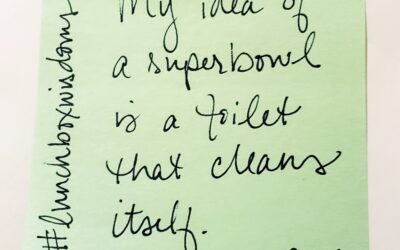 My idea of
a superbowl
is a toilet
that cleans
itself.
#lunchboxwisdoms